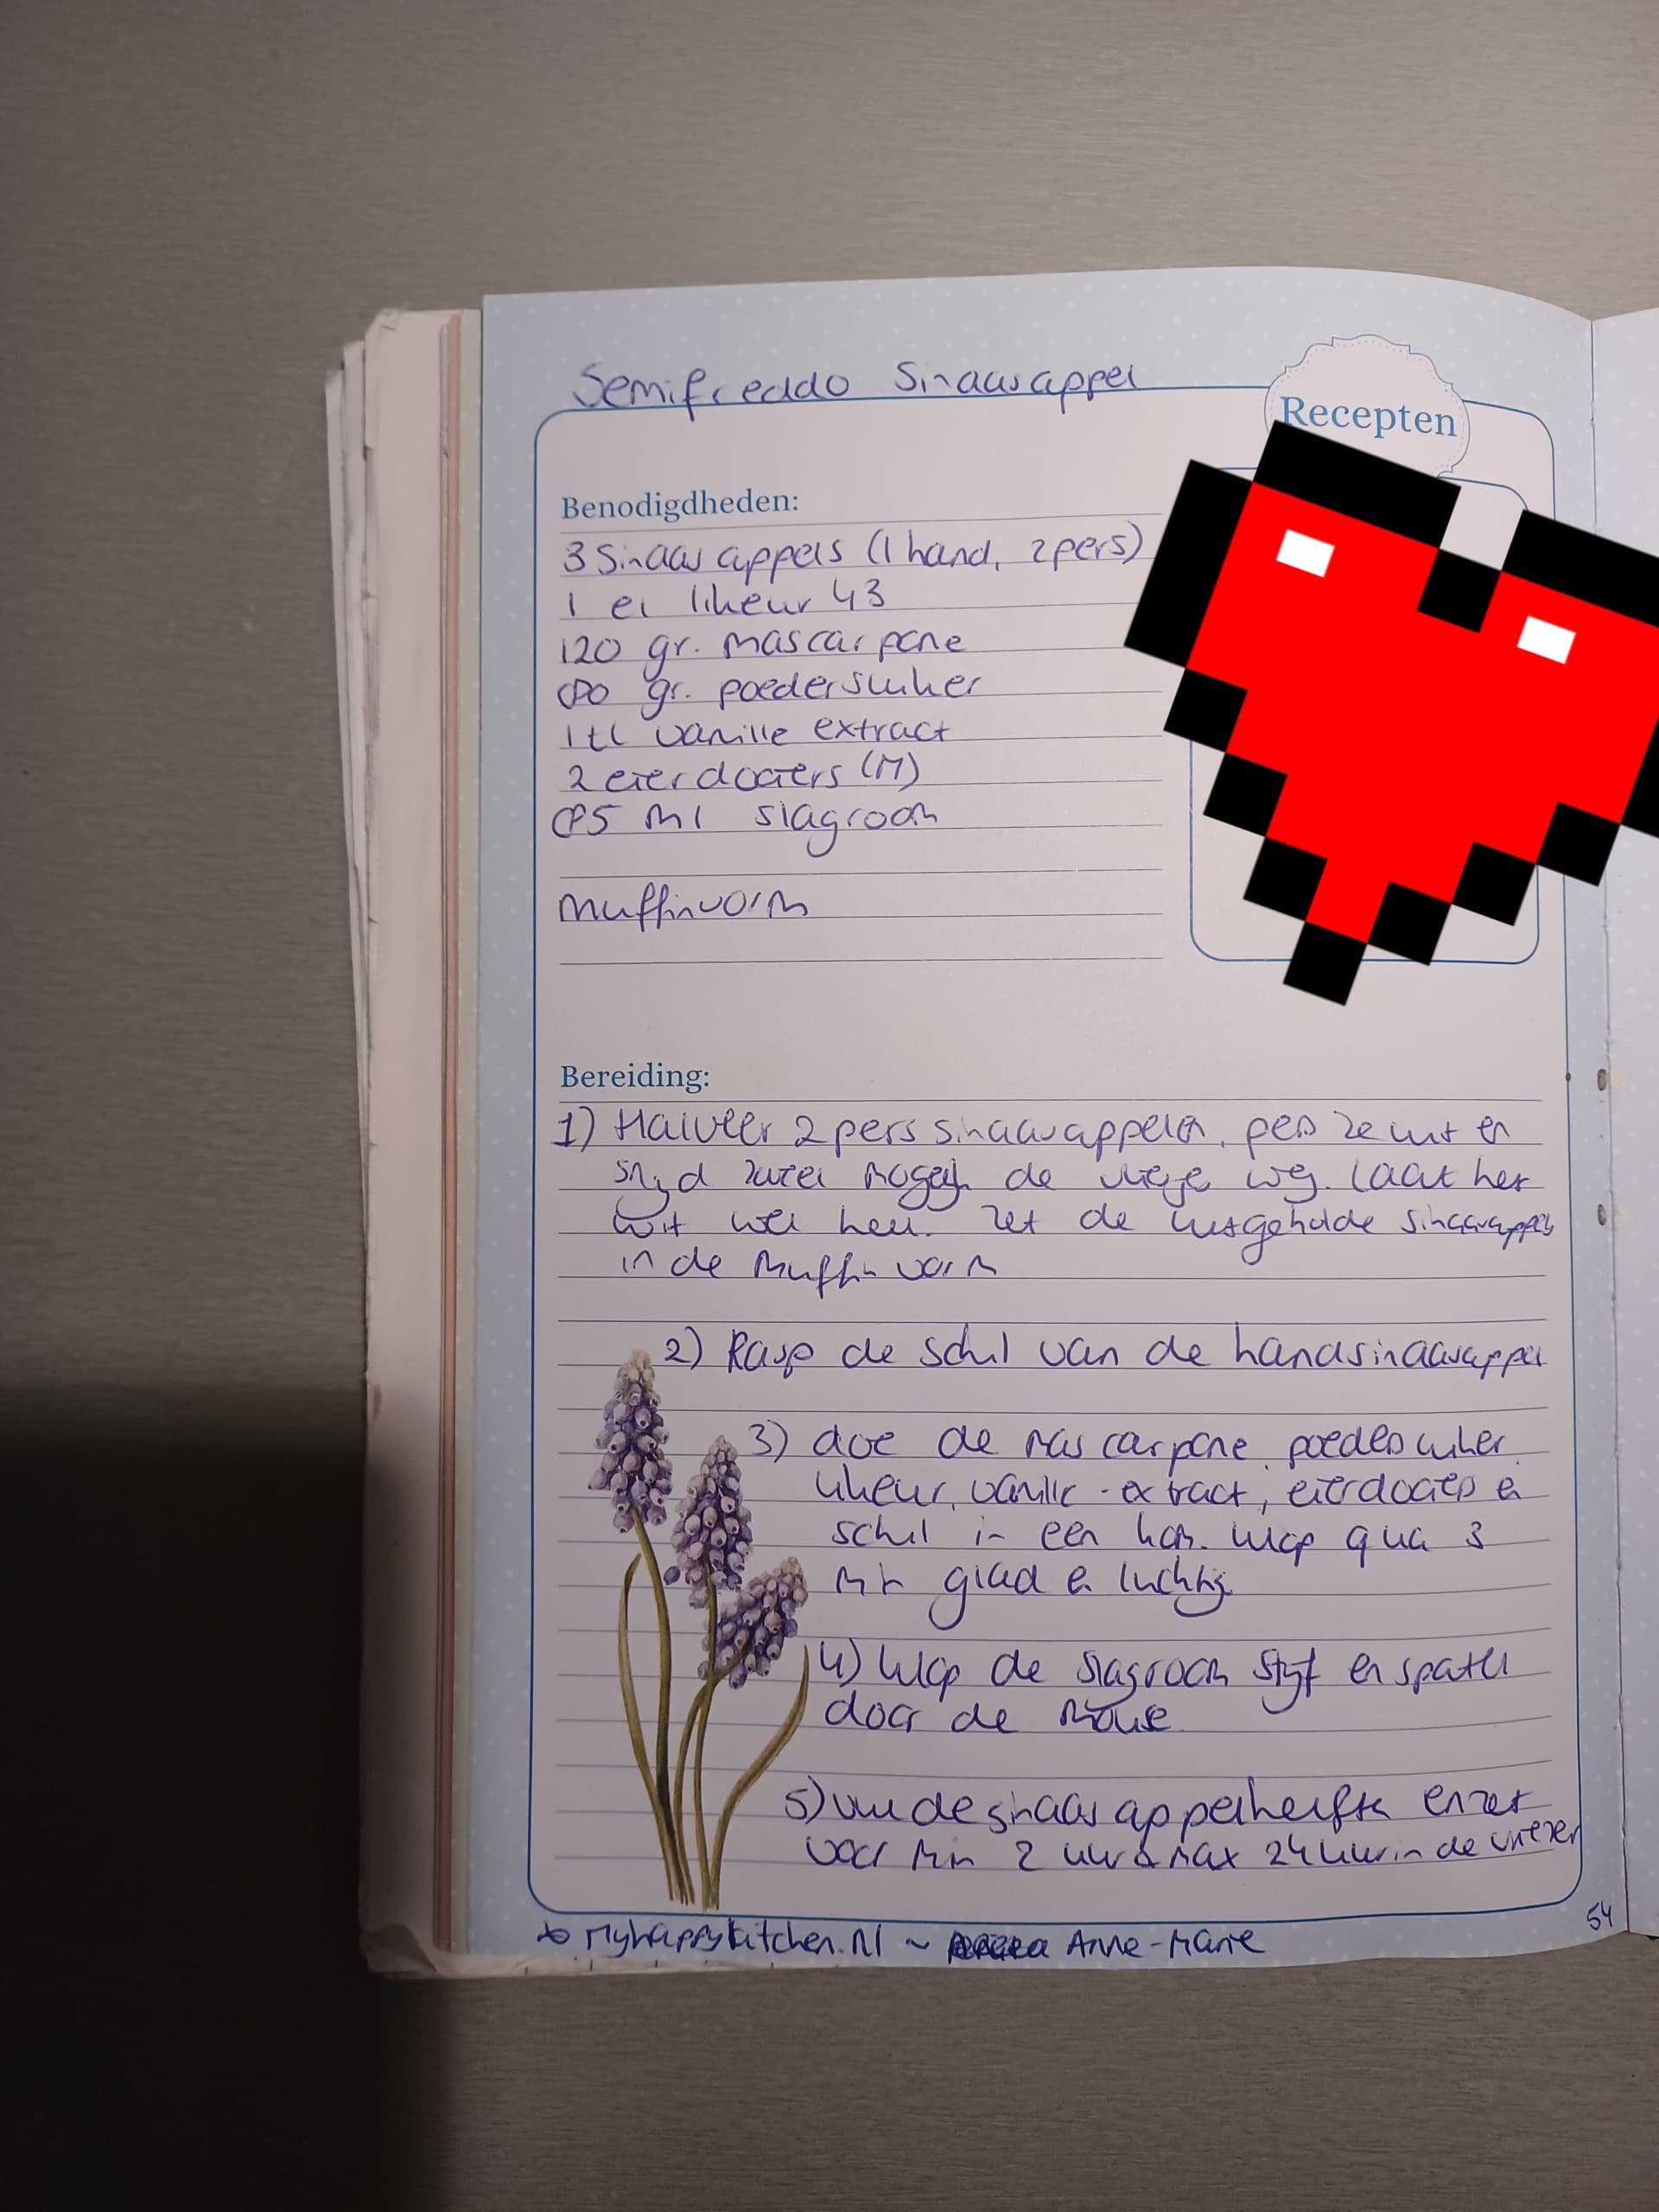 Semifreddo Sinaasappel
Recepten
Benodigdheden:
3 Sinaasappels (1 hand, 2 pers)
1 el likeur 43
120 gr. mascarpone
80 gr. poedersuiker
1 tl vanille extract
2 eierdooiers (M)
85 ml slagroom
muffinvorm
Bereiding:
1) Halveer 2 pers sinaasappelen, pers ze uit en
snijd zoveel mogelijk de vliesjes weg. Laat het
wit wel heel. Zet de uitgeholde sinaasappels
in de muffinvorm
2) Rasp de schil van de handsinaasappel
3) doe de mascarpone, poedersuiker
likeur, vanille-extract, eierdooiers en
schil in een kom. klop qua 3
min glad en luchtig.
4) klop de slagroom stijf en spatel
door de mousse
5) vul de sinaasappelhelften en zet
voor min 2 uur & max 24 uur in de vriezer
myhappykitchen.nl ~ Anne-Marie
54